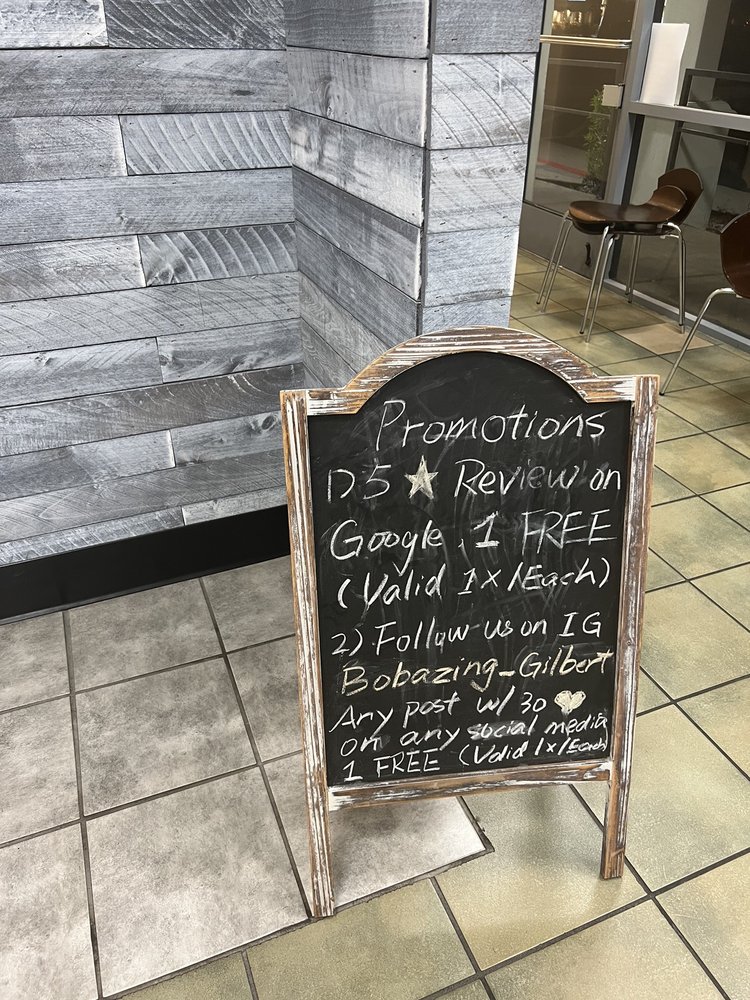 Promotions
1) 5 ★ Review on
Google, 1 FREE
(Valid 1x/Each)
2) Follow us on IG
Bobazing_Gilbert
Any post w/ 30 ♥
on any social media
1 FREE (Valid 1x/Each)